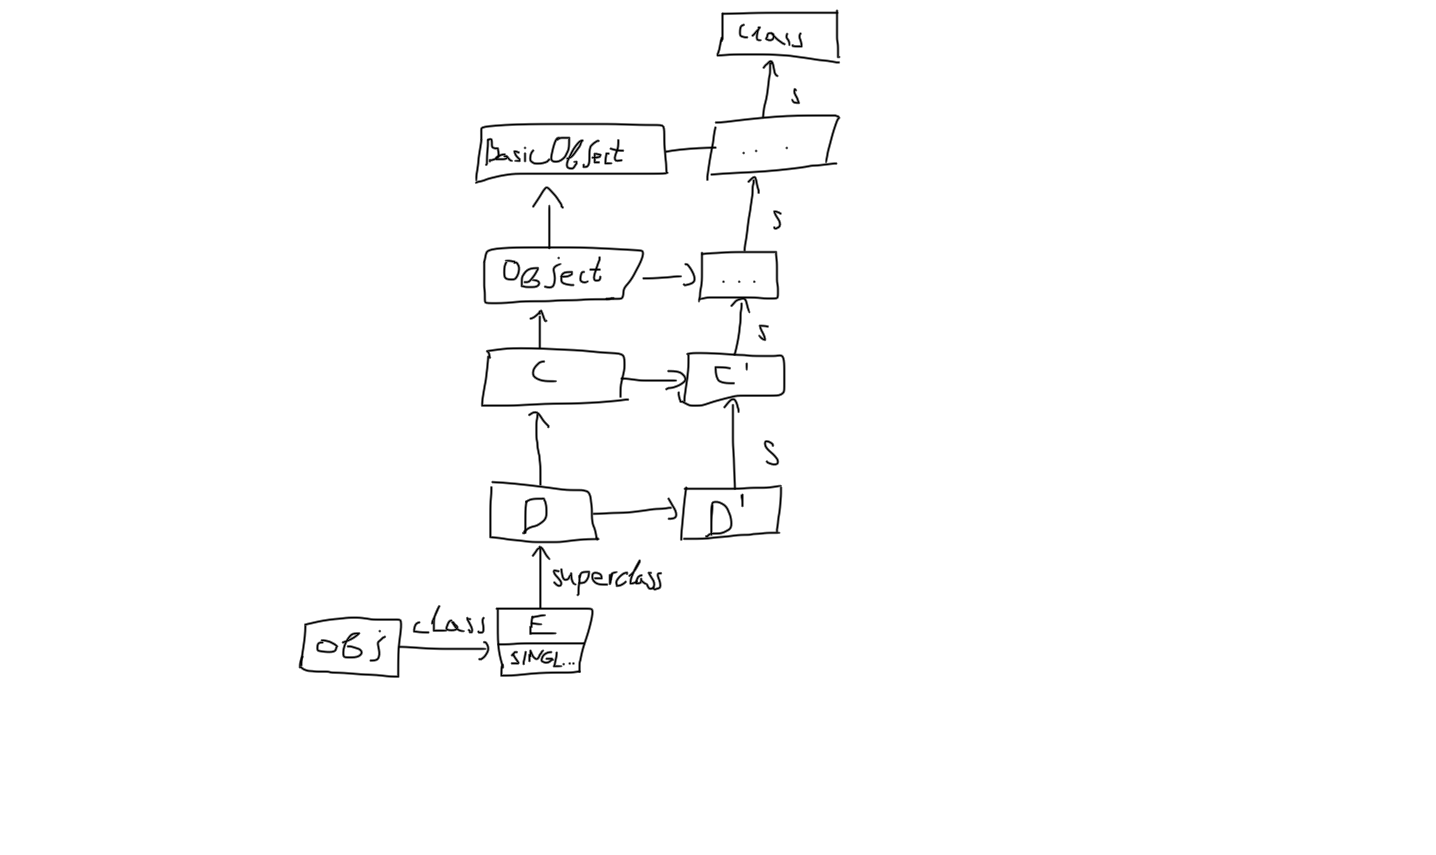 Class
s
BasicObject
....
s
Object
...
s
C
C'
s
D
D'
superclass
class
E
obj
SINGL...